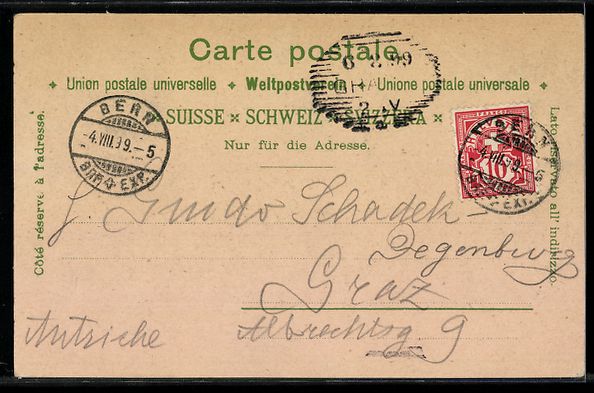 Carte postale.
Union postale universelle Weltpostverein Unione postale universale
SUISSE × SCHWEIZ × SVIZZERA ×
Nur für die Adresse.
Côté réservé à l'adresse.
Lato riservato all' indirizzo.
BERN
-4.VIII.99.-5
BRF. EXP.
6 8 99
GRA
2 V
BERN
4.VIII.99.-5
EXP.
10
G. Guido Schadek-
Degenburg
Graz
Autriche Albrechtsg 9